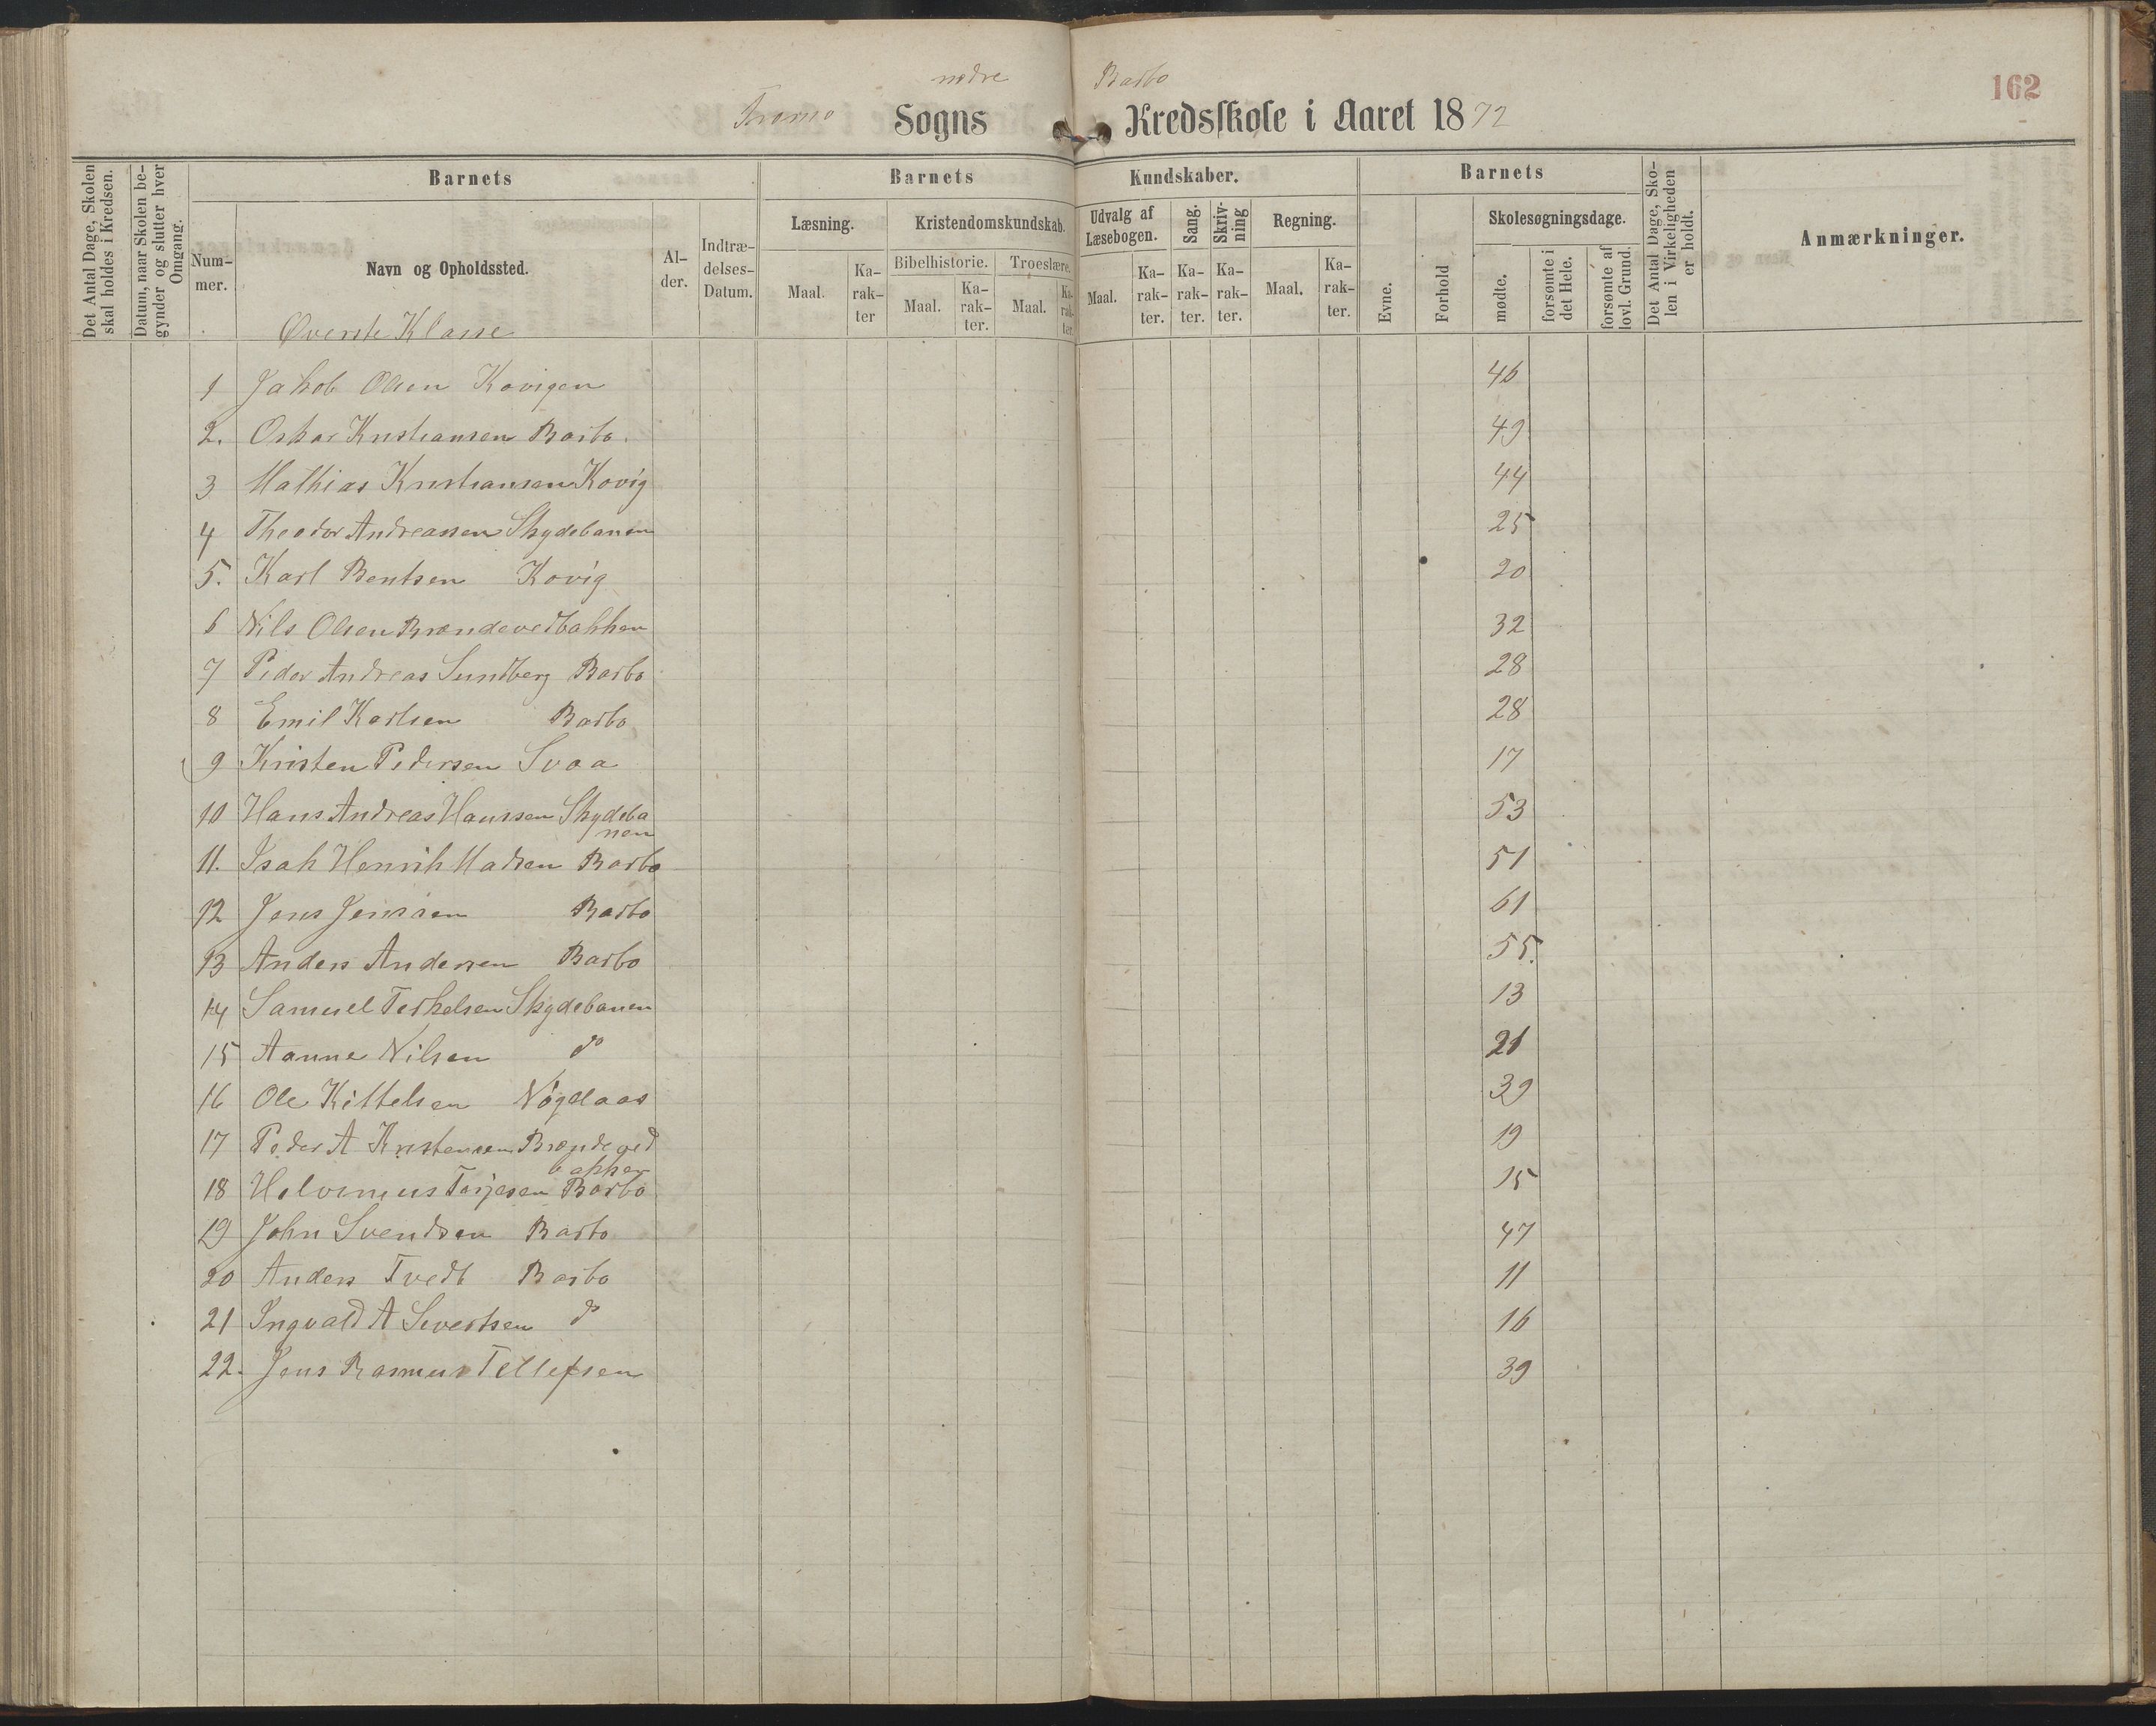 nedre Barbo
Tromø Sogns Kredsskole i Aaret 1872
162
Det Antal Dage, Skolen skal holdes i Kredsen.
Datum, naar Skolen begynder og slutter hver Omgang.
Barnets
Nummer.
Navn og Opholdssted.
Alder.
Indtrædelses-Datum.
Barnets Kundskaber.
Læsning.
Maal.
Karakter
Kristendomskundskab.
Bibelhistorie.
Maal.
Karakter.
Troeslære.
Maal.
Karakter.
Udvalg af Læsebogen.
Maal.
Karakter.
Sang.
Karakter.
Skrivning
Karakter.
Regning.
Maal.
Karakter.
Barnets
Evne.
Forhold
Skolesøgningsdage.
mødte.
forsømte i det Hele.
forsømte af lovl. Grund.
Det Antal Dage, Skolen i Virkeligheden er holdt.
Anmærkninger.
Øverste Klasse
1 Jakob Olsen Kovigen 46
2. Oskar Kristiansen Barbo. 49
3 Mathias Kristiansen Kovig 44
4 Theodor Andreassen Skydebanen 25
5. Karl Bentsen Kovig 20
6 Nils Olsen Brændevedbakken 32
7 Peder Andreas Sundberg Barbo 28
8 Emil Karlsen Barbo 28
9 Kristen Pedersen Svaa 17
10 Hans Andreas Hanssen Skydeba
nen 53
11. Isak Henrik Madsen Barbo 51
12 Jens Jenssen Barbo 61
13 Anders Andersen Barbo 55.
14 Samuel Terkelsen Skydebanen 13
15 Aanne Nilsen do 21
16 Ole Kittelsen Nøgelaas 39
17 Peder A Kristensen Brændeved
bakken 19
18 Torjesen Barbo 15
19 John Svendsen Barbo 47
20 Anders Tvedt Barbo 11
21 Ingvald A Severtsen do 16
22. Jens Rasmus Tellefsen 39